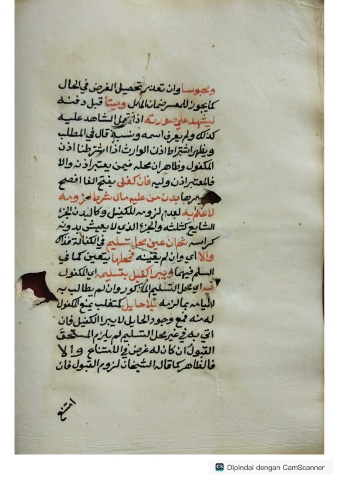 ومحبوسا وان تعذر تحصيل الغرض في الحال
كما يجوز للمعسر ضمان المال وميتا قبل دفنه
ليشهد على صورته اذا تحمل الشاهد عليه
كذلك ولم يعرف اسمه ونسبه قال في المطلب
ويظهر اشتراط اذن الوارث اذا اشترطنا اذن
المكفول وظاهر ان محله فيمن يعتبر اذنه والا
فالمعتبر اذن وليه فان كفل بفتح الفا افصح
من بدن من عليه مال شرط لزومه
لا علم به لعدم لزومه للكفيل وكالبدن الجزء
الشايع كثلثه والجزء الذي لا يعيش بدونه
كراسه ثم ان عين محل تسليم في الكفالة فذاك
والا اي وان لم يعينه فمحلها يتعين كما في
السلم فيهما ويبرا الكفيل بتسليمه اي المكفول
فيه اي محل التسليم المذكور وان لم يطالب به
بلا حايل كمتغلب يمنع المكفول
له منه فمع وجود الحايل لا يبرا الكفيل فان
اتى به في غير محل التسليم لم يلزم المستحق
القبول ان كان له غرض في الامتناع والا
فالظاهر كما قاله الشيخان لزوم القبول فان
امتنع
Dipindai dengan CamScanner